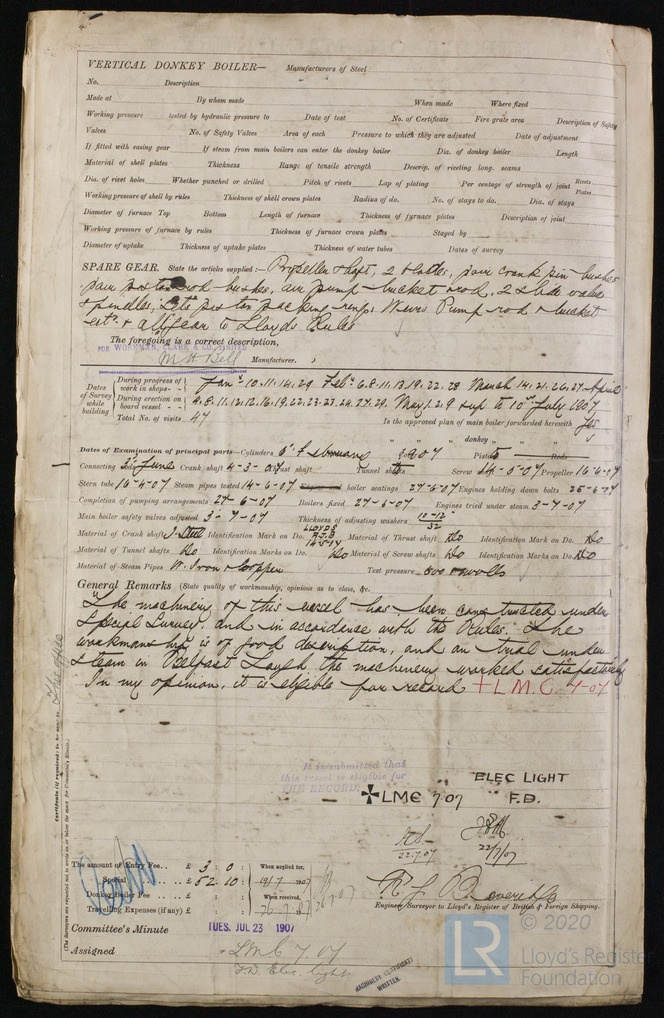 VERTICAL DONKEY BOILER— Manufacturers of Steel
No. Description
Made at By whom made When made Where fixed
Working pressure tested by hydraulic pressure to Date of test No. of Certificate Fire grate area Description of Safety
Valves No. of Safety Valves Area of each Pressure to which they are adjusted Date of adjustment
If fitted with easing gear If steam from main boilers can enter the donkey boiler Dia. of donkey boiler Length
Material of shell plates Thickness Range of tensile strength Descrip. of riveting long. seams
Dia. of rivet holes Whether punched or drilled Pitch of rivets Lap of plating Per centage of strength of joint Rivets Plates
Working pressure of shell by rules Thickness of shell crown plates Radius of do. No. of stays to do. Dia. of stays
Diameter of furnace Top Bottom Length of furnace Thickness of furnace plates Description of joint
Working pressure of furnace by rules Thickness of furnace crown plates Stayed by
Diameter of uptake Thickness of uptake plates Thickness of water tubes Dates of survey
SPARE GEAR. State the articles supplied:— Propeller shaft, 2 blades, pair crank pin bushes
pair piston rod bushes, air pump bucket rod, 2 slide valve
spindles, sets piston packing rings, Weirs Pump rod & bucket
& all gear to Lloyds Rules
The foregoing is a correct description,
FOR WORKMAN, CLARK & CO. LIMITED
Bell Manufacturer.
Dates of Survey while building
During progress of work in shops - - Jany. 10.11.14.29 Feby. 6.8.11.13.19.22.28 March 14.21.26.27 April
During erection on board vessel - - 4.8.11.12.12.16.19.22.23.23.24.27.29. May 1.2.9 & up to 10th July 1907
Total No. of visits 47 Is the approved plan of main boiler forwarded herewith Yes
" " " donkey " " "
Dates of Examination of principal parts—Cylinders 6th February 1907 Pistons Rods
Connecting June Crank shaft 4-3-07 Thrust shaft Tunnel shafts Screw 14-5-07 Propeller 16-6-07
Stern tube 16-4-07 Steam pipes tested 14-6-07 boiler seatings 27-6-07 Engines holding down bolts 25-6-07
Completion of pumping arrangements 27-6-07 Boilers fixed 27-6-07 Engines tried under steam 3-7-07
Main boiler safety valves adjusted 3-7-07 Thickness of adjusting washers 10-12 32
Material of Crank shaft I. Steel Identification Mark on Do. LLOYD'S Material of Thrust shaft Do Identification Mark on Do. Do
Material of Tunnel shafts Do Identification Marks on Do. Do Material of Screw shafts Do Identification Marks on Do. Do
Material of Steam Pipes W. Iron & Copper Test pressure
General Remarks (State quality of workmanship, opinions as to class, &c.
The machinery of this vessel has been constructed under
Special Survey, and in accordance with the Rules. The
workmanship is of good description, and on trial under
steam in Belfast Lough the machinery worked satisfactorily
In my opinion, it is eligible for record + L.M.C. 7-07
It is submitted that
this vessel is eligible for
THE RECORD. + LMC 7.07 ELEC LIGHT
F.D.
22.7.07 22/7/07
Certificate (if required) to be sent to
(The Surveyors are requested not to write on or below the space for Committee's Minute.)
The amount of Entry Fee.. £ 3 : 0 : When applied for,
Special .. .. £ 52 : 10 : 19/7 1907
Donkey Boiler Fee .. .. £ : : When received,
Travelling Expenses (if any) £ : : 26.7.07
Engineer Surveyor to Lloyd's Register of British & Foreign Shipping.
Committee's Minute TUES. JUL 23 1907
Assigned + LMC 7.07
F.D. Elec. light
MACHINERY CERTIFICATE WRITTEN.
© 2020
LR Lloyd's Register
Foundation